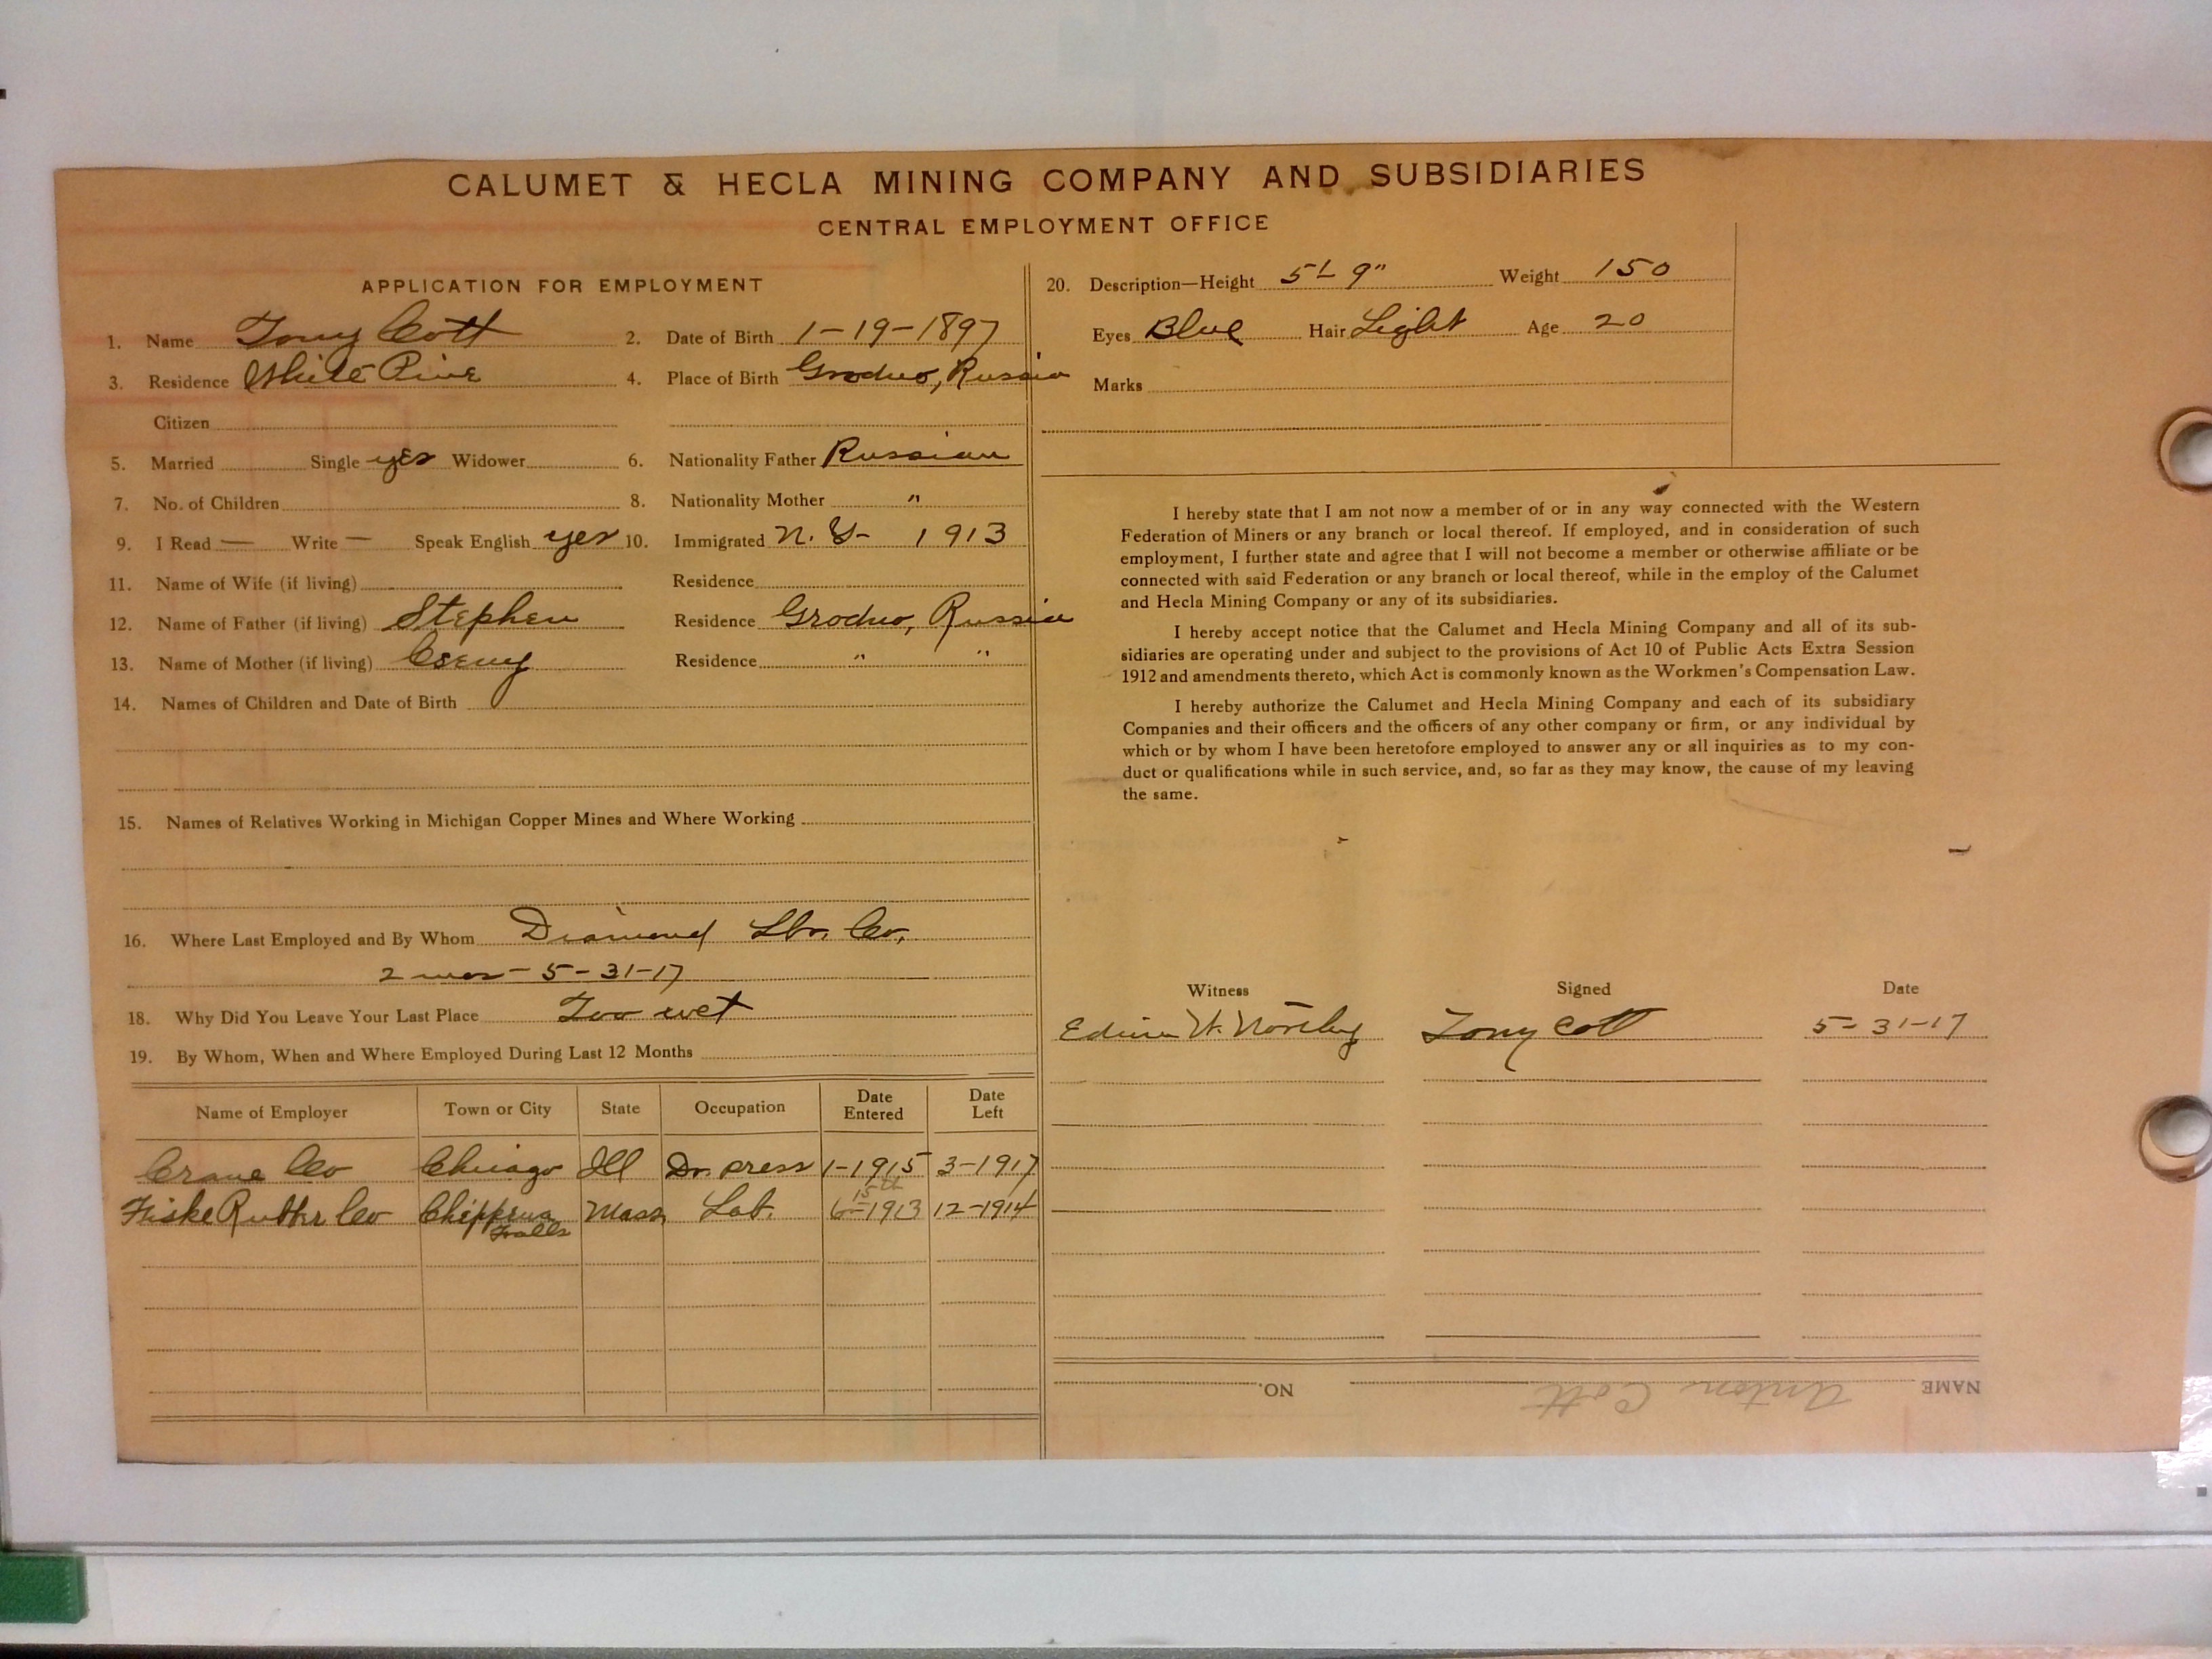 CALUMET & HECLA MINING COMPANY AND SUBSIDIARIES
CENTRAL EMPLOYMENT OFFICE
APPLICATION FOR EMPLOYMENT
1. Name Tony Cott 2. Date of Birth 1-19-1897
3. Residence White Pine 4. Place of Birth Grodno, Russia
Citizen
5. Married Single yes Widower 6. Nationality Father Russian
7. No. of Children 8. Nationality Mother "
9. I Read — Write — Speak English yes 10. Immigrated N. Y- 1913
11. Name of Wife (if living) Residence
12. Name of Father (if living) Stephen Residence Grodno, Russia
13. Name of Mother (if living) Residence " "
14. Names of Children and Date of Birth
15. Names of Relatives Working in Michigan Copper Mines and Where Working
16. Where Last Employed and By Whom Diamond Lbr. Co.
2 mos - 5-31-17
18. Why Did You Leave Your Last Place Too wet
19. By Whom, When and Where Employed During Last 12 Months
Name of Employer Town or City State Occupation Date Entered Date Left
Crane Co Chicago Ill Dr. press 1-1915 3-1917
15th
Fiske Rubber Co Chippewa Falls Mass Lab. 6-1913 12-1914
20. Description—Height 5' 9" Weight 150
Eyes Blue Hair Light Age 20
Marks
I hereby state that I am not now a member of or in any way connected with the Western
Federation of Miners or any branch or local thereof. If employed, and in consideration of such
employment, I further state and agree that I will not become a member or otherwise affiliate or be
connected with said Federation or any branch or local thereof, while in the employ of the Calumet
and Hecla Mining Company or any of its subsidiaries.
I hereby accept notice that the Calumet and Hecla Mining Company and all of its sub-
sidiaries are operating under and subject to the provisions of Act 10 of Public Acts Extra Session
1912 and amendments thereto, which Act is commonly known as the Workmen's Compensation Law.
I hereby authorize the Calumet and Hecla Mining Company and each of its subsidiary
Companies and their officers and the officers of any other company or firm, or any individual by
which or by whom I have been heretofore employed to answer any or all inquiries as to my con-
duct or qualifications while in such service, and, so far as they may know, the cause of my leaving
the same.
Witness Signed Date
Edwin W. Tony Cott 5-31-17
NAME Anton Cott NO.